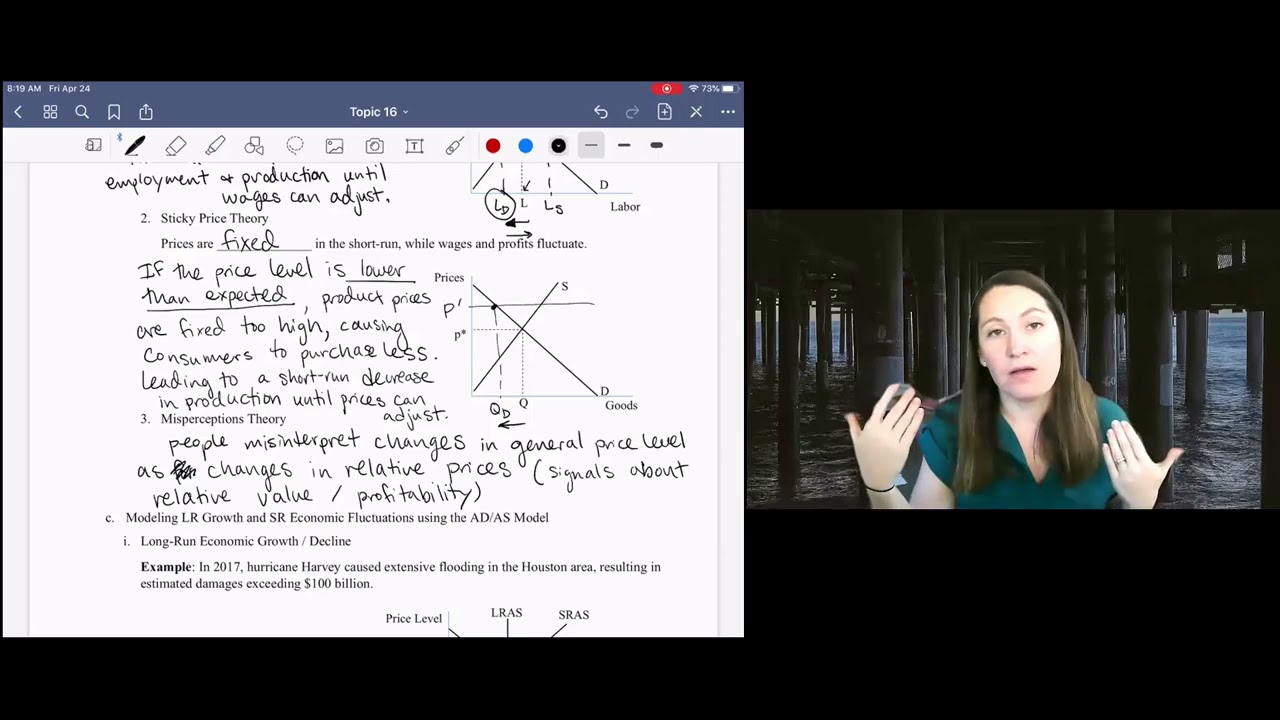 8:19 AM Fri Apr 24
73%
Topic 16
T
employment & production until
wages can adjust.
D
L_D L L_S
Labor
2. Sticky Price Theory
Prices are fixed in the short-run, while wages and profits fluctuate.
If the price level is lower
than expected, product prices
are fixed too high, causing
consumers to purchase less.
leading to a short-run decrease
in production until prices can
adjust.
Prices
S
P'
P*
D
Q_D Q
Goods
3. Misperceptions Theory
people misinterpret changes in general price level
as changes in relative prices (signals about
relative value / profitability)
c. Modeling LR Growth and SR Economic Fluctuations using the AD/AS Model
i. Long-Run Economic Growth / Decline
Example: In 2017, hurricane Harvey caused extensive flooding in the Houston area, resulting in
estimated damages exceeding $100 billion.
Price Level
LRAS
SRAS